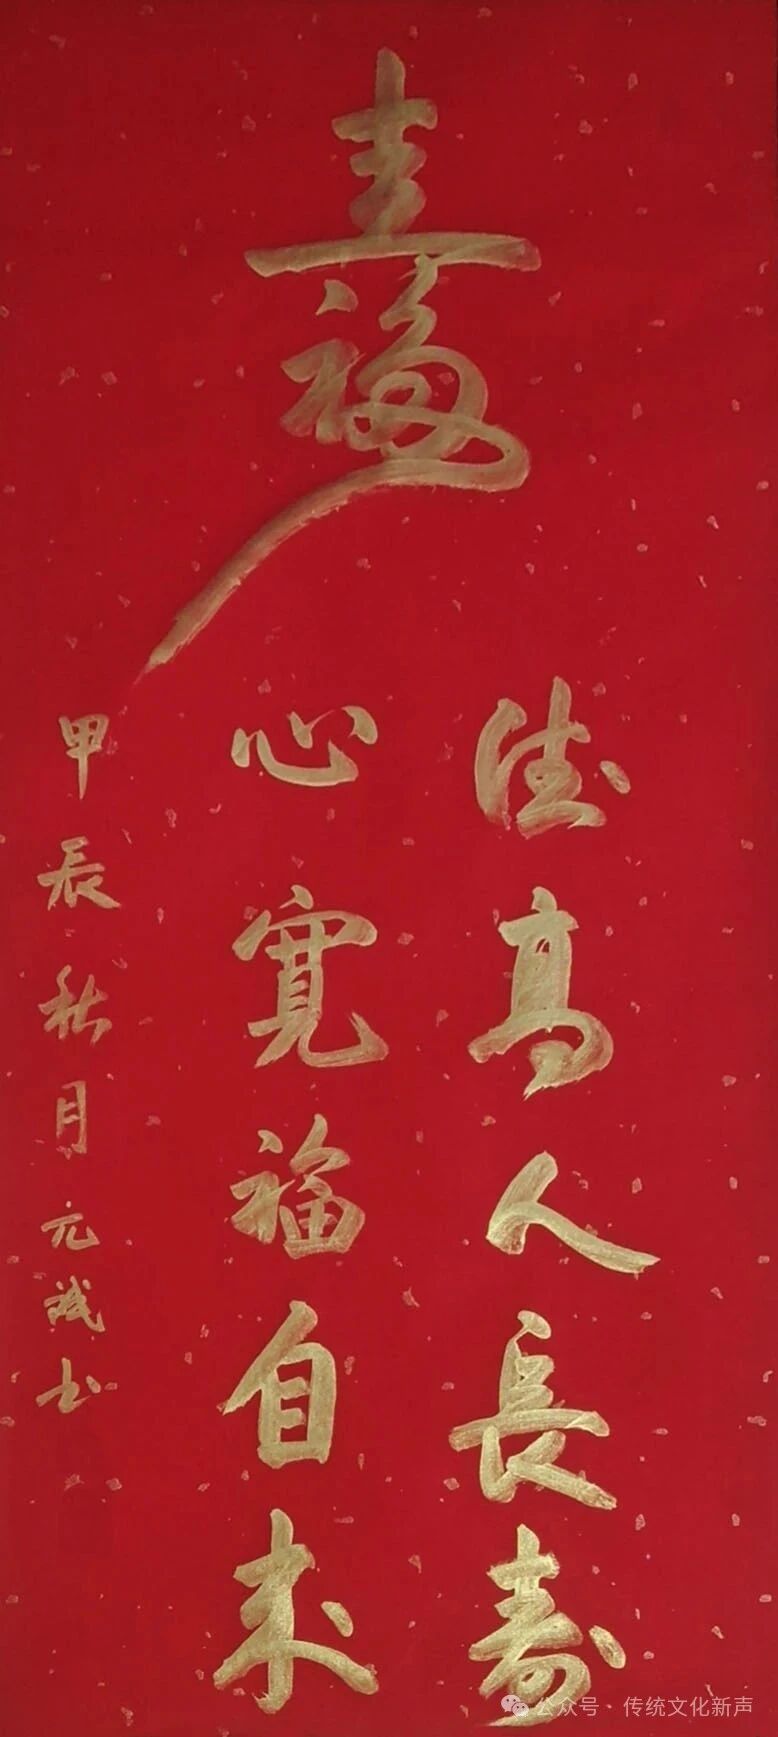 德高人長壽
心寬福自来
甲辰秋月元誠书
公众号·传统文化新声